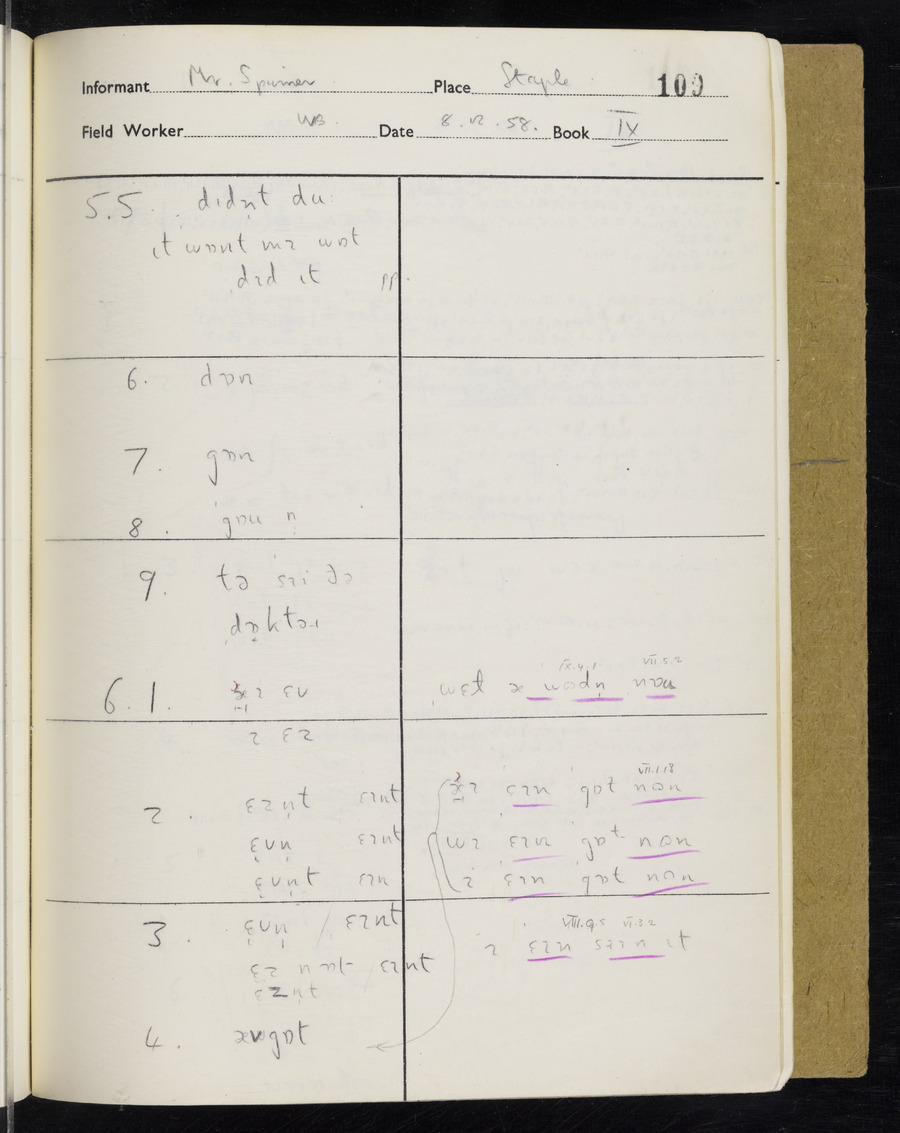 Informant Mr. Spinner Place Staple 109
Field Worker WB. Date 8.12.58. Book IX
5.5 didn̩t du:
ɪt wɒnt mɪ wɒt
dɪd ɪt pp.
6. dɒn
7. gɒn
8. n̩
9. tə ðə
dɒktəɹ
6.1. ɛv
IX.4.1 VII.5.2
ɪ ɛz
2. ɛzn̩t ɛɪnt
VII.1.18
ɛɪn gɒt nɒn
ɛvn̩ ɛɪnt
wɪ ɛɪn gɒt nɒn
ɛvn̩t ɛɪn
ɪ ɛɪn gɒt nɒn
3. ɛvn̩ / ɛɪnt
VIII.9.5 VI.3.2
ɪ ɛɪn sɪɪn ɪt
ɛz nɒt ɛɪnt
ɛzn̩t
4. ævgɒt